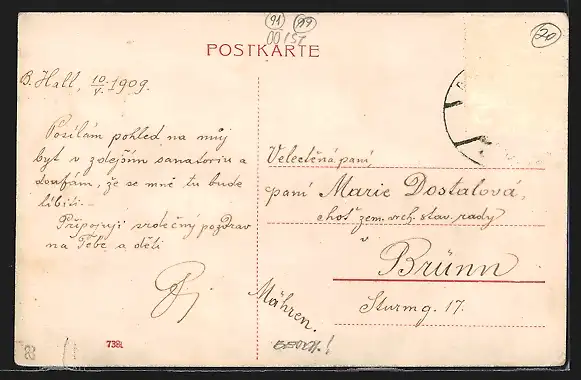 91 99
00157
20
POSTKARTE
B. Hall, 10/V. 1909.
Posílám pohled na můj
byt v zdejším sanatoriu a
doufám, že se mně tu bude
líbiti. –
Připojuji srdečný pozdrav
na Tebe a děti
Velectěná paní,
paní Marie Dostalová,
choť zem. vrch. stav. rady
v
Brünn
Sturmg. 17.
Mähren.
7381